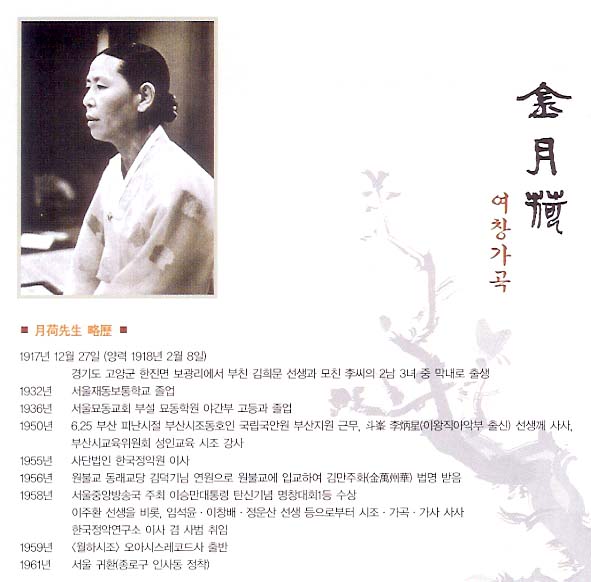 金月荷
여창가곡
■ 月荷先生 略歷 ■
1917년 12월 27일 (양력 1918년 2월 8일)
경기도 고양군 한진면 보광리에서 부친 김희문 선생과 모친 李씨의 2남 3녀 중 막내로 출생
1932년 서울재동보통학교 졸업
1936년 서울묘동교회 부설 묘동학원 야간부 고등과 졸업
1950년 6.25 부산 피난시절 부산시조동호인 국립국안원 부산지원 근무, 斗峯 李炳星(이왕직아악부 출신) 선생께 사사,
부산시교육위원회 성인교육 시조 강사
1955년 사단법인 한국정악원 이사
1956년 원불교 동래교당 김덕기님 연원으로 원불교에 입교하여 김만주화(金萬州華) 법명 받음
1958년 서울중앙방송국 주최 이승만대통령 탄신기념 명창대회1등 수상
이주환 선생을 비롯, 임석윤 · 이창배 · 정운산 선생 등으로부터 시조 · 가곡 · 가사 사사
한국정악연구소 이사 겸 사범 취임
1959년 〈월하시조〉 오아시스레코드사 출반
1961년 서울 귀환(종로구 인사동 정착)